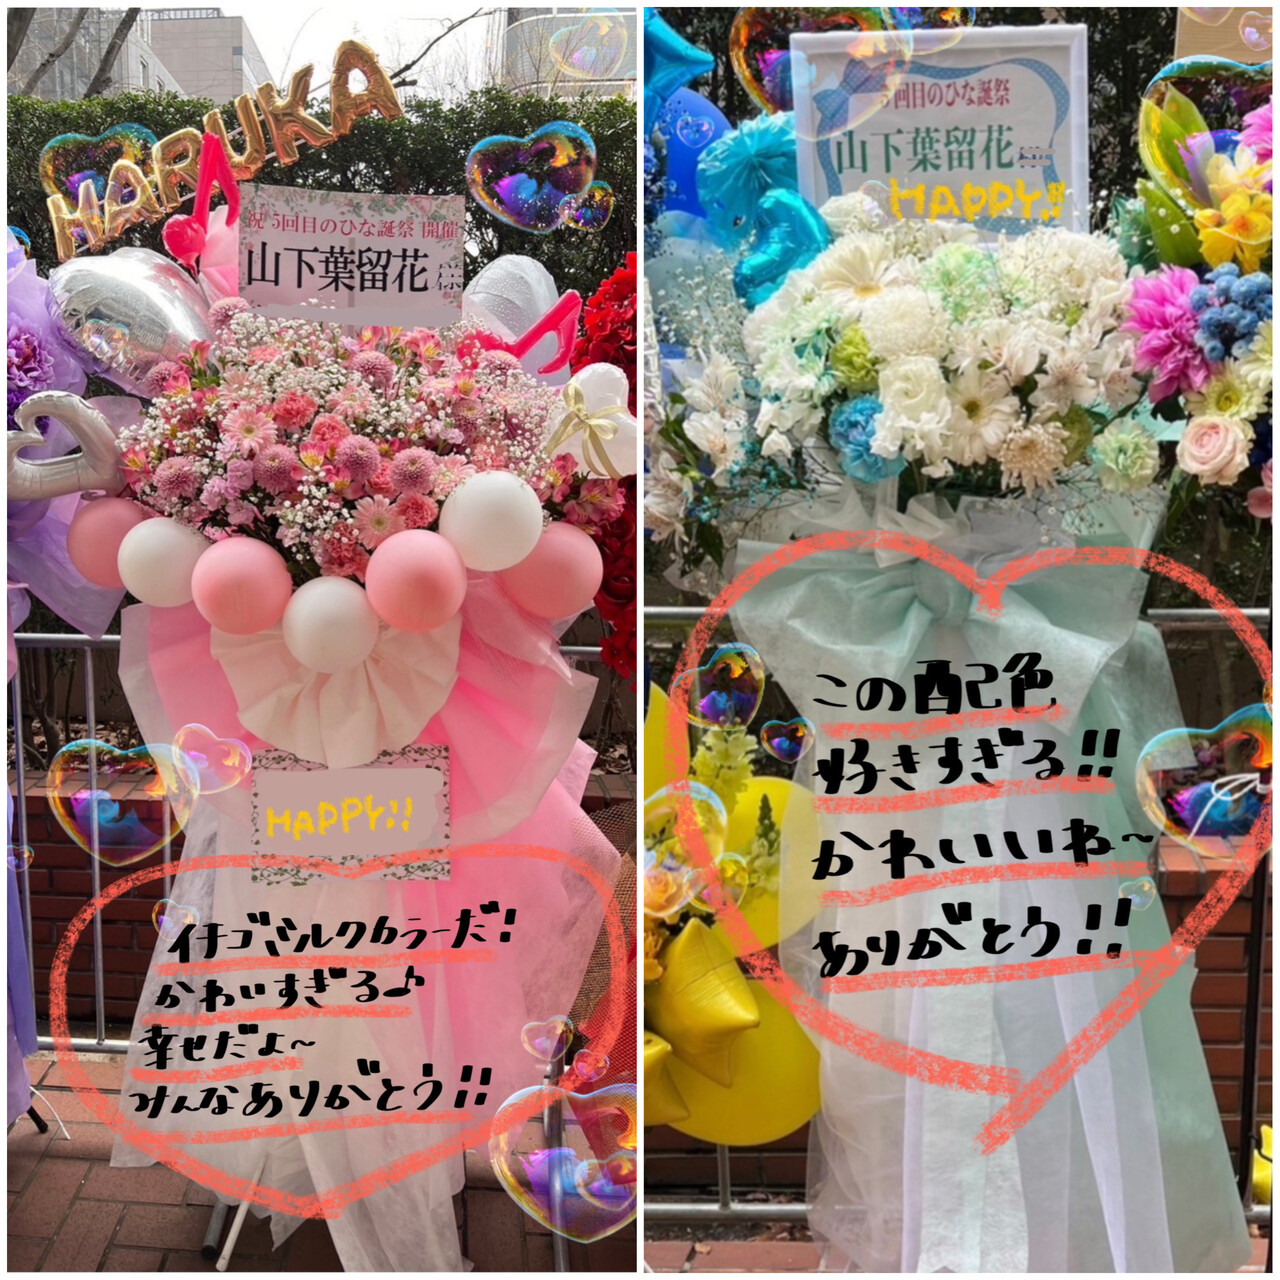 HARUKA
祝 5回目のひな誕祭 開催
山下葉留花 様
HAPPY!!
イチゴミルクカラーだ!
かわいすぎる♪
幸せだよ~
みんなありがとう!!
5回目のひな誕祭
山下葉留花 様
HAPPY!!
この配色
好きすぎる!!
かわいいね~
ありがとう!!